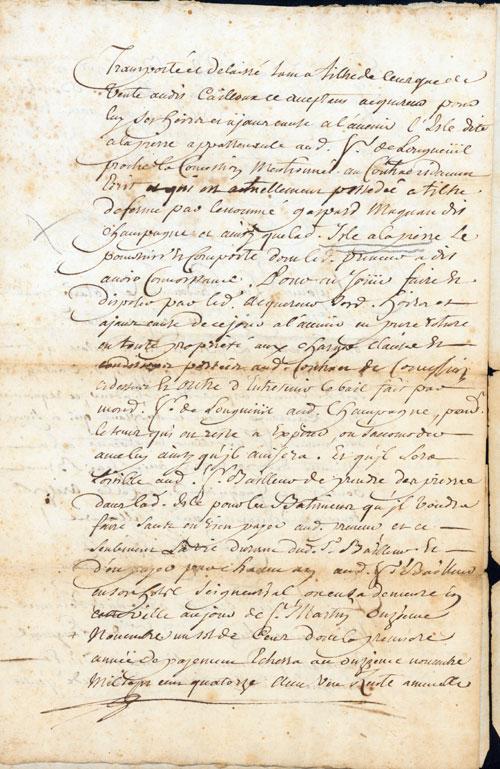 Transporté et delaissé tant a tiltre de
vente audit Cailloux ce acceptant acquereur pour
luy ses hoirs et ayans cause a l'avenir l'Isle dite
a la pierre appartenante aud. Sr. de Longueüil
proche la Concession Mentionnée au Contract
et qui est actuellement possedée a tiltre
de ferme par le nommé gaspard Magnan dit
Champagne et ainsy que lad. Isle a la pierre se
poursuit et Comporte dont led. preneur a dit
avoir Connoissance. Pour en Joüir faire et
disposer par led. acquereur sesd. Hoirs et
ayans cause de ce jour a l'avenir en
en toute propriété aux charges clauses et
aud. Contract de Concession
cy dessus et outre d'Entretenir le bail fait par
mond. Sr. de Longueüil aud. Champagne, pend.
le tems qui en reste a Expirer, ou s'accomoder
avec luy ainsy qu'il avisera. Et qu'il sera
loisible aud. Sr. Bailleur de prendre des pierres
dans lad. Isle pour les Batimens qu'il voudra
faire sans en rien payer aud. preneur et ce
seulement la vie durant dud. Sr. Bailleur Et
d'en payer par chacun an aud. Sr. Bailleur
en son hotel Seigneurial ou en sa demeure en
cette ville au jour de St. Martin Onziéme
Novembre un sol de Cens dont la premiere
année de payement Echerra au onziéme novembre
Mil sept cens quatorze avec une Rente annuelle